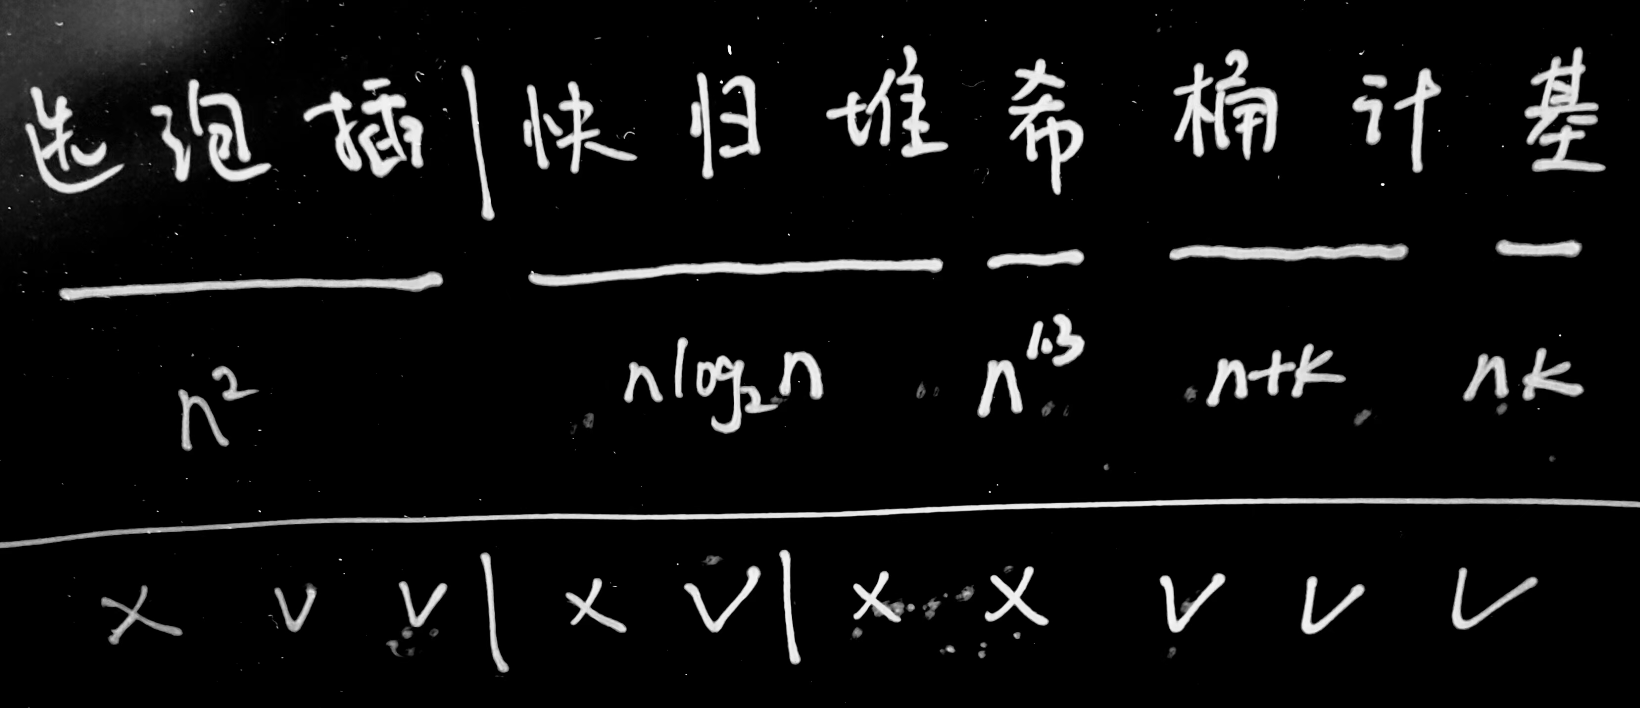 选 泡 插 | 快 归 堆 希 桶 计 基
n² nlog₂n n¹·³ n+k nk
× √ √ | × √ | × × √ √ √